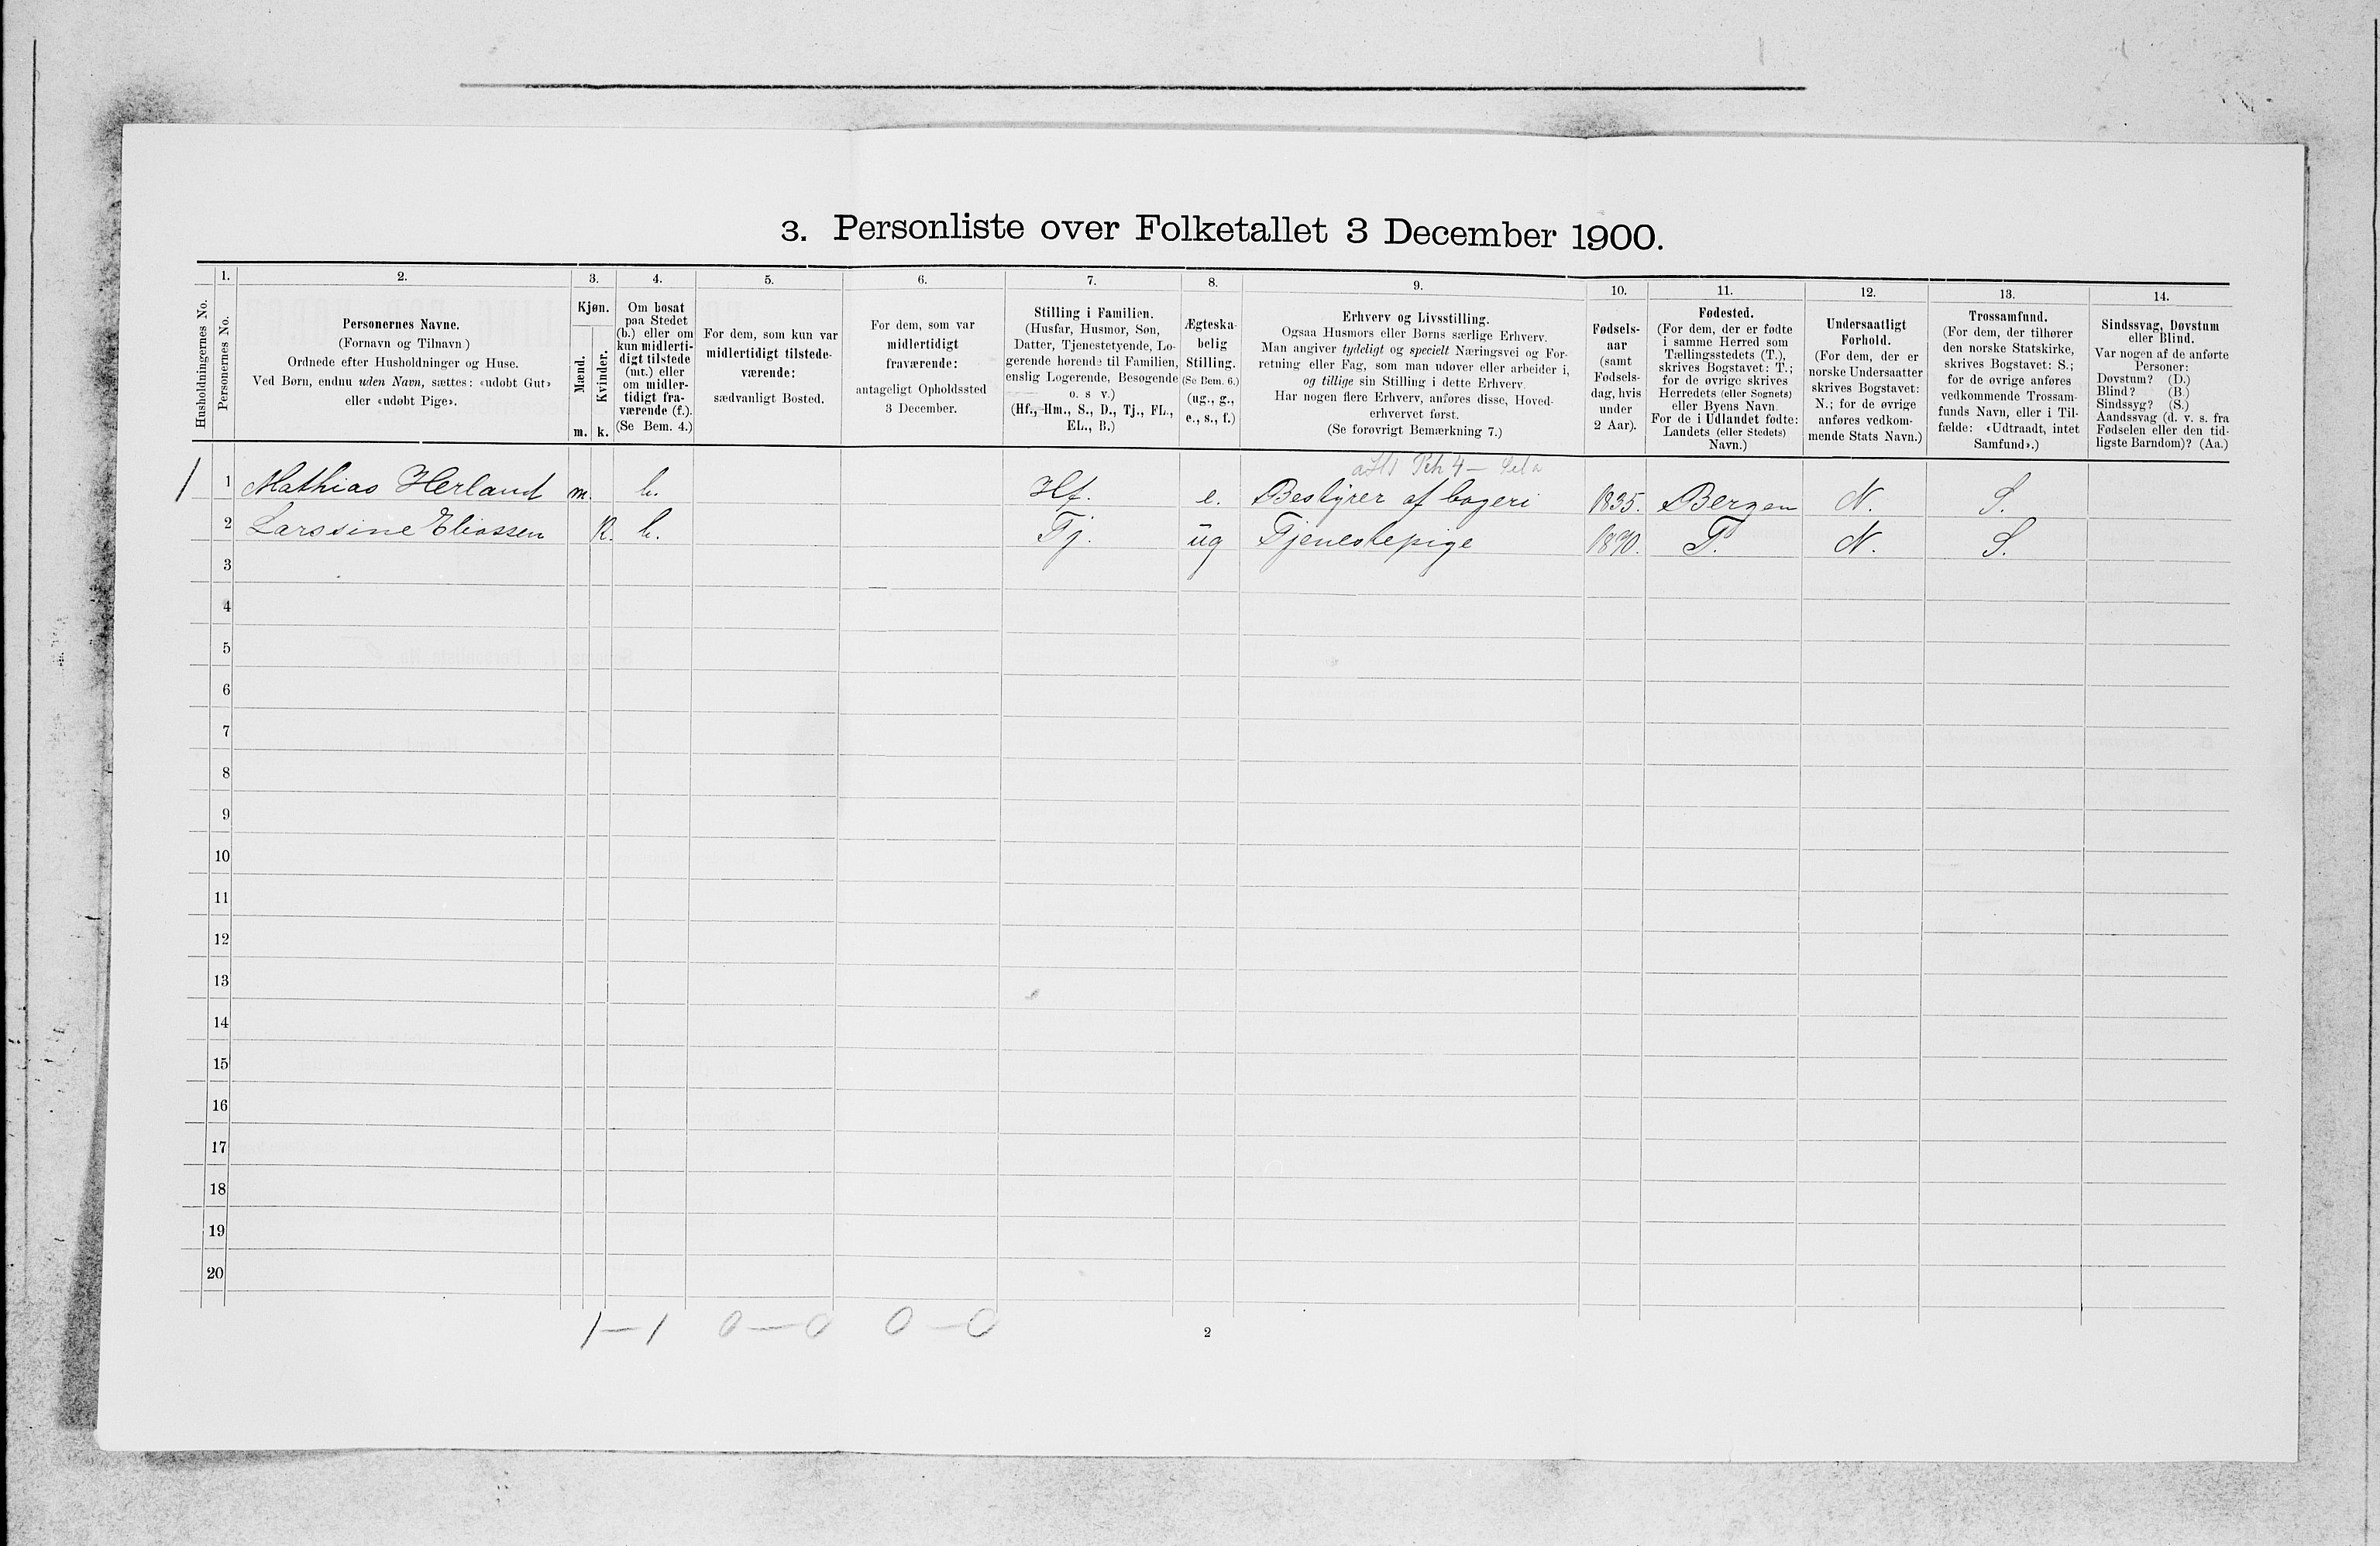 3. Personliste over Folketallet 3 December 1900.
Husholdningernes No.
1.
Personernes No.
2.
Personernes Navne.
(Fornavn og Tilnavn)
Ordnede efter Husholdninger og Huse.
Ved Børn, endnu uden Navn, sættes: «udøbt Gut»
eller «udøbt Pige».
3.
Kjøn.
Mænd.
Kvinder.
m. k.
4.
Om bosat
paa Stedet
(b.) eller om
kun midlerti-
digt tilstede
(mt.) eller
om midler-
tidigt fra-
værende (f.).
(Se Bem. 4.)
5.
For dem, som kun var
midlertidigt tilstede-
værende:
sædvanligt Bosted.
6.
For dem, som var
midlertidigt
fraværende:
antageligt Opholdssted
3 December.
7.
Stilling i Familien.
(Husfar, Husmor, Søn,
Datter, Tjenestetyende, Lo-
gerende hørende til Familien,
enslig Logerende, Besøgende
o. s v.)
(Hf., Hm., S., D., Tj., FL.,
EL., B.)
8.
Ægteska-
belig
Stilling.
(Se Bem. 6.)
(ug., g.,
e., s., f.)
9.
Erhverv og Livsstilling.
Ogsaa Husmors eller Børns særlige Erhverv.
Man angiver tydeligt og specielt Næringsvei og For-
retning eller Fag, som man udøver eller arbeider i,
og tillige sin Stilling i dette Erhverv.
Har nogen flere Erhverv, anføres disse, Hoved-
erhvervet først.
(Se forøvrigt Bemærkning 7.)
10.
Fødsels-
aar
(samt
Fødsels-
dag, hvis
under
2 Aar).
11.
Fødested.
(For dem, der er fødte
i samme Herred som
Tællingsstedets (T.),
skrives Bogstavet: T.;
for de øvrige skrives
Herredets (eller Sognets)
eller Byens Navn.
For de i Udlandet fødte:
Landets (eller Stedets)
Navn.)
12.
Undersaatligt
Forhold.
(For dem, der er
norske Undersaatter
skrives Bogstavet:
N.; for de øvrige
anføres vedkom-
mende Stats Navn.)
13.
Trossamfund.
(For dem, der tilhører
den norske Statskirke,
skrives Bogstavet: S.;
for de øvrige anføres
vedkommende Trossam-
funds Navn, eller i Til-
fælde: «Udtraadt, intet
Samfund».)
14.
Sindssvag, Døvstum
eller Blind.
Var nogen af de anførte
Personer:
Døvstum? (D.)
Blind? (B.)
Sindssyg? (S.)
Aandssvag (d. v. s. fra
Fødselen eller den tid-
ligste Barndom)? (Aa.)
1 1 Mathias Herland m. b. Hf. e. Bestyrer af bageri 1835. Bergen N. S.
2 Larssine Eliassen K. b. Tj. ug Tjenestepige 1890. T. N. S.
3
4
5
6
7
8
9
10
11
12
13
14
15
16
17
18
19
20
1—1 0—0 0—0
2